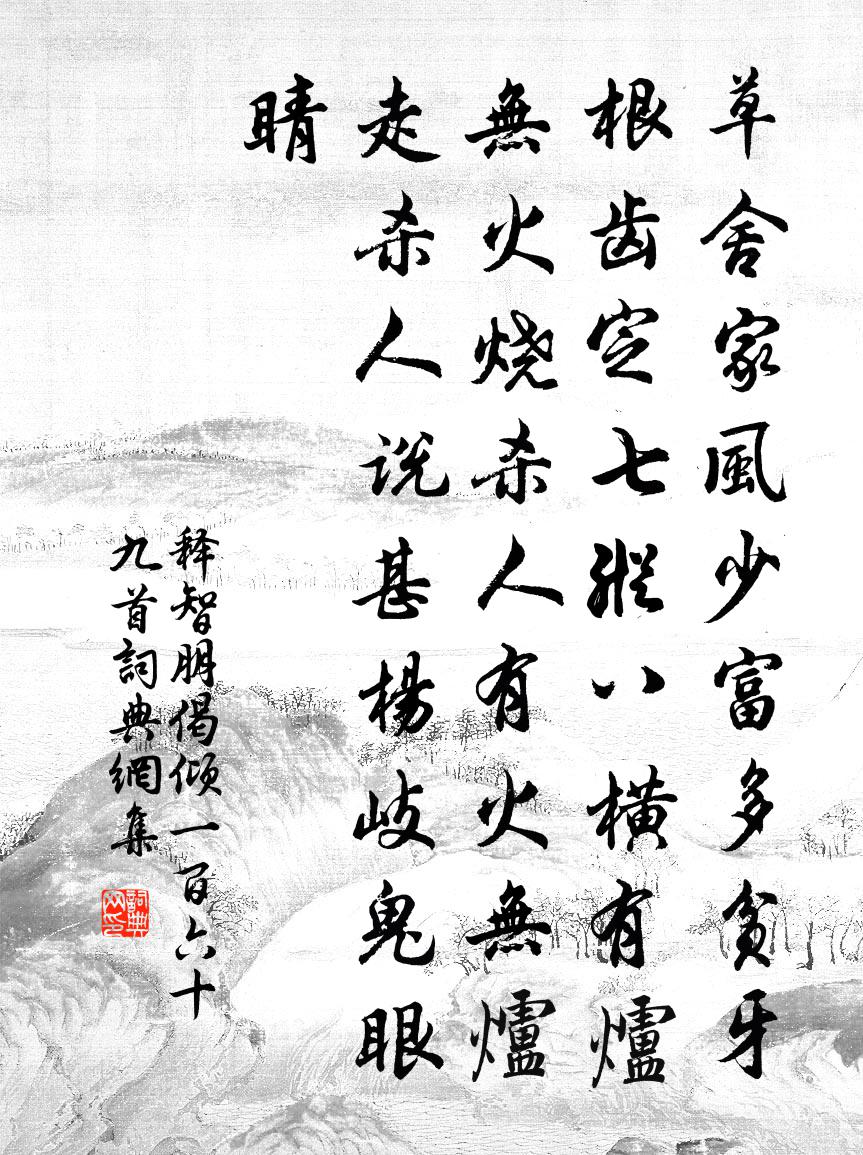 草舍家風少富多貧牙
根齿定七縱八橫有爐
無火烧杀人有火無爐
走杀人说甚楊岐鬼眼
睛
释智朋偈倾一百六十
九首詞典網集
詞典
网印